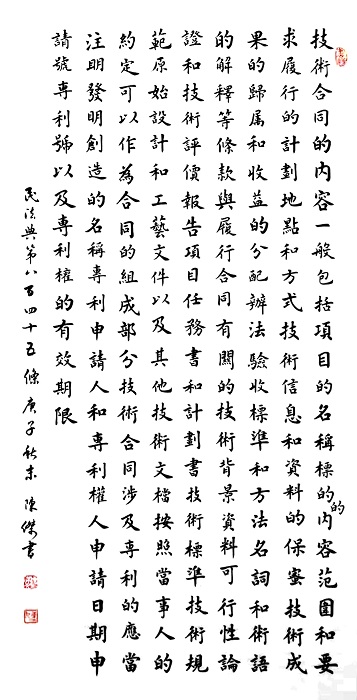 技術合同的內容一般包括項目的名稱標的的內容范圍和要
求履行的計劃地點和方式技術信息和資料的保蜜技術成
果的歸属和收益的分配辦法驗收標準和方法名詞和術語
的解釋等條款與履行合同有關的技術背景資料可行性論
證和技術評價報告項目任務書和計劃書技術標準技術規
範原始設計和工藝文件以及其他技術文檔按照當事人的
約定可以作為合同的組成部分技術合同涉及專利的應當
注明發明創造的名稱專利申請人和專利權人申請日期申
請號專利號以及專利權的有效期限
民法典第八百四十五條 庚子秋末 陳傑書